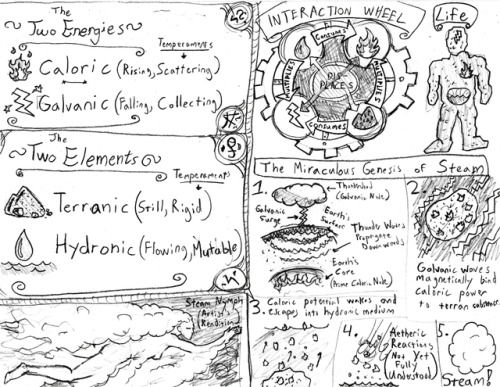 The
Two Energies
Temperaments
Caloric (Rising, Scattering)
Galvanic (Falling, Collecting)
The
Two Elements
Temperaments
Terranic (Still, Rigid)
Hydronic (Flowing, Mutable)
Steam Nymph
Artist's
Rendition
INTERACTION WHEEL
Consumes
Multiplies
DIS-
PLACES
Multiplies
Consumes
Life
The Miraculous Genesis of Steam
1.
Thunderhead
(Galvanic Node)
Galvanic
Surge
Earth's
Surface
Thunder Waves
Propagate
Downwards
Earth's
Core
(Prime Caloric Node)
2.
Galvanic waves
magnetically bind
caloric power
to terran substance.
3. Caloric potential wakens and
escapes into hydronic medium
4.
Aetheric
Reactions
Not Yet
Fully
Understood
5.
Steam!